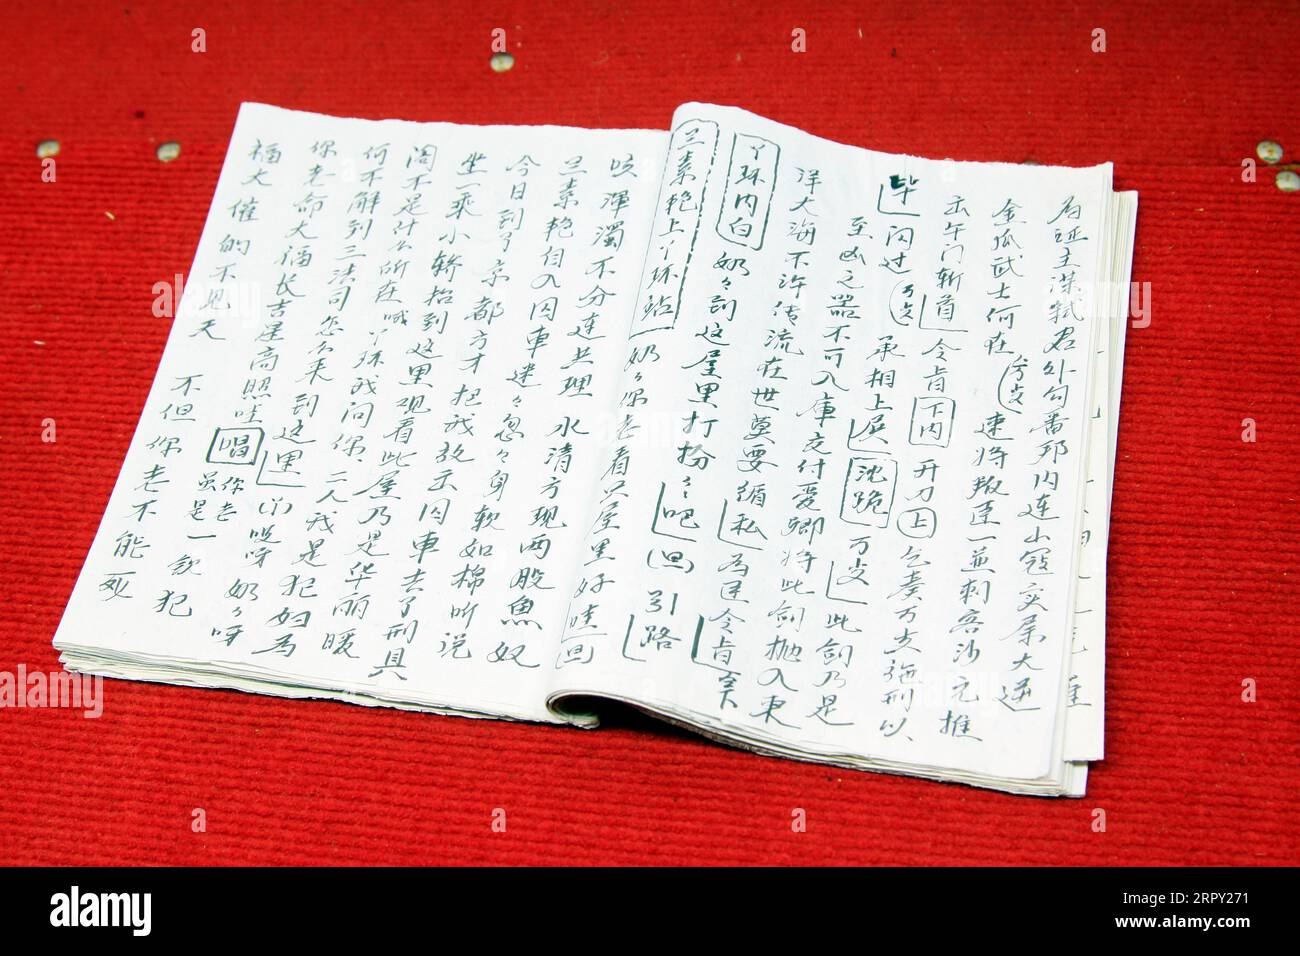 为证主谋弑君外勾番邦内连山寇实属大逆
金瓜武士何在 速将叛臣一並刺客沙元推
去午门斩首 令旨 下内 开刀 上 乞奏万岁施刑以
毕 闪过 万岁 承相上殿 沈跪 万岁 此剑乃是
至凶之器不可入库交付爱卿将此剑抛入東
洋大海不许传流在世莫要循私 为臣令旨 下
丫环内白 奶々到这屋里打扮々吧 (四) 引路
兰素艳上丫环站 奶々你老看只屋里好哇 回
咳 浑濁不分連共理 水清方现两股魚 奴
兰素艳自入囚車迷々忽々身软如棉听说
今日到了京都方才把我放出囚車去了刑具
坐一乘小轿抬到这里观看此屋乃是华丽暖
阁不是什么所在哦丫环我问你二人我是犯妇为
何不解到三法司怎么来到这里 (丫) 哎呀奶々呀
你老命大福长吉星高照哇 唱 你老虽是一钦犯
福大催的不见天 不但你老不能死
alamy
Image ID: 2RPY271
www.alamy.com